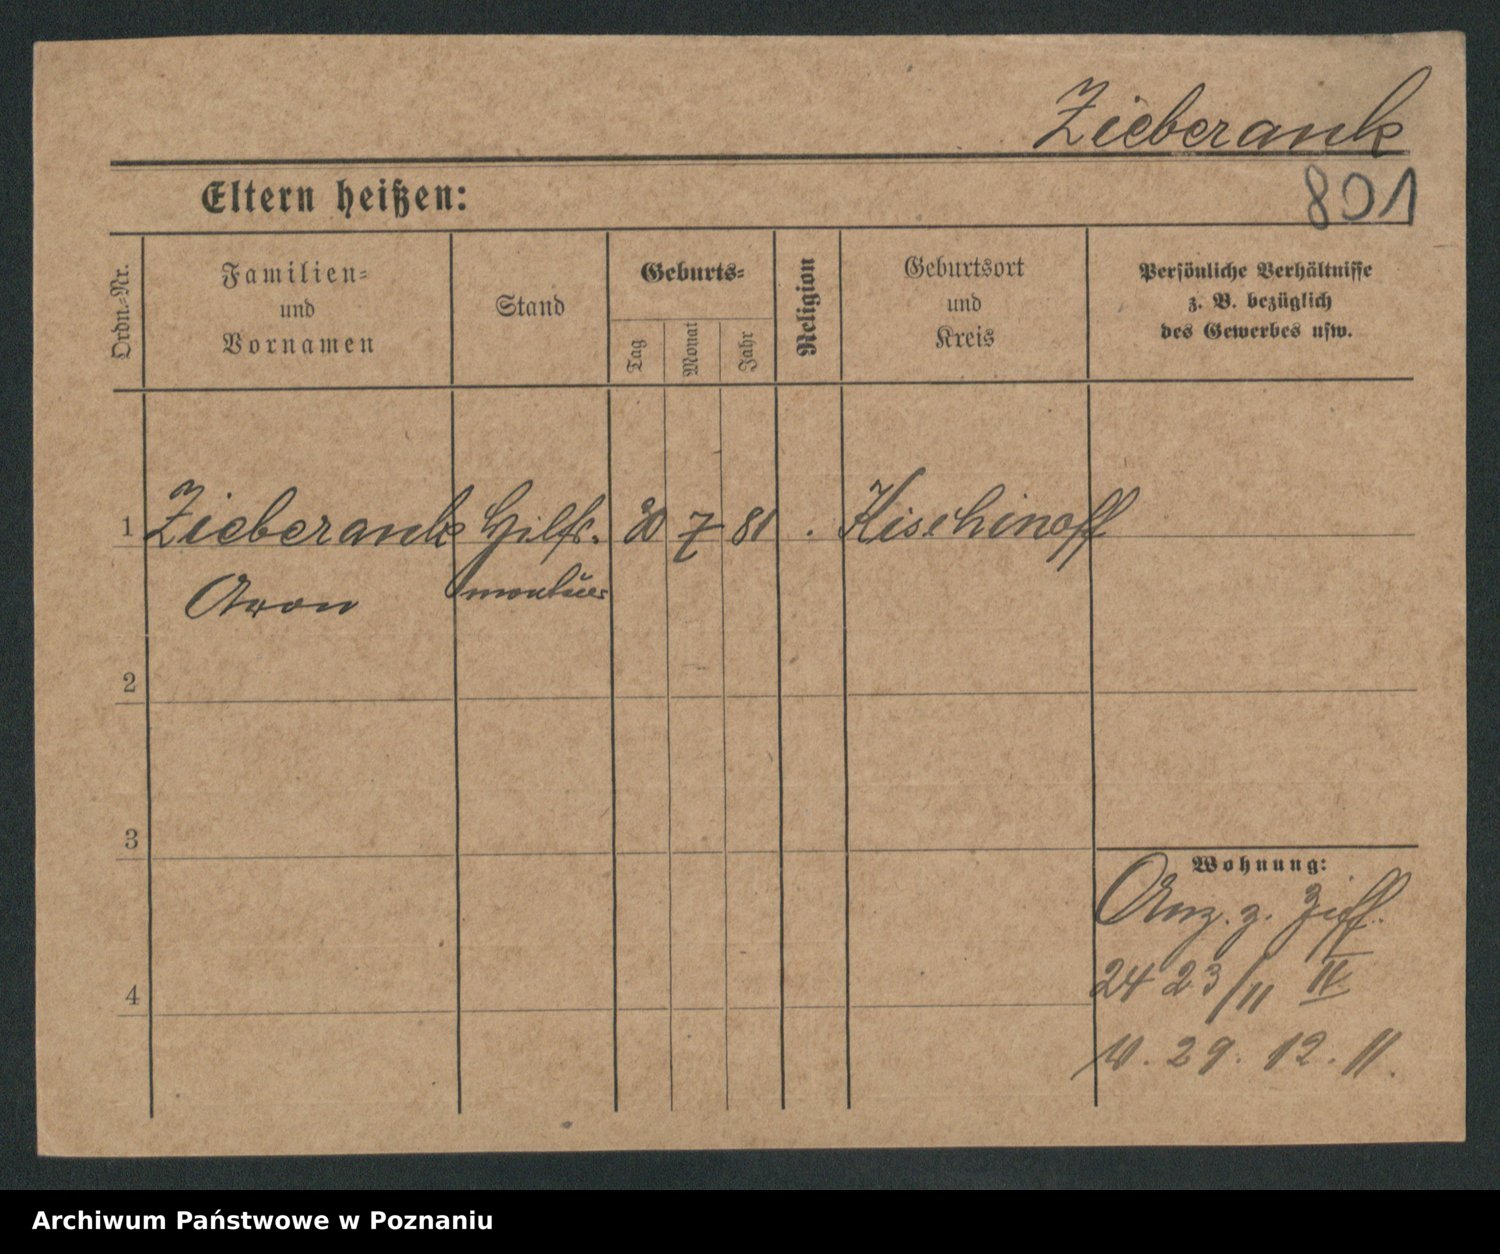 Zieberank
801
Eltern heißen:
Ordn.-Nr.
Familien-
und
Vornamen
Stand
Geburts-
Tag
Monat
Jahr
Religion
Geburtsort
und
Kreis
Persönliche Verhältnisse
z. B. bezüglich
des Gewerbes usw.
1 Zieberank Hilfs. 20 7 81 . Kischinoff
Aron monteur
2
3
4
Wohnung:
Anz. z. Ziff.
24 23/11 IV
v. 29. 12. 11.
Archiwum Państwowe w Poznaniu